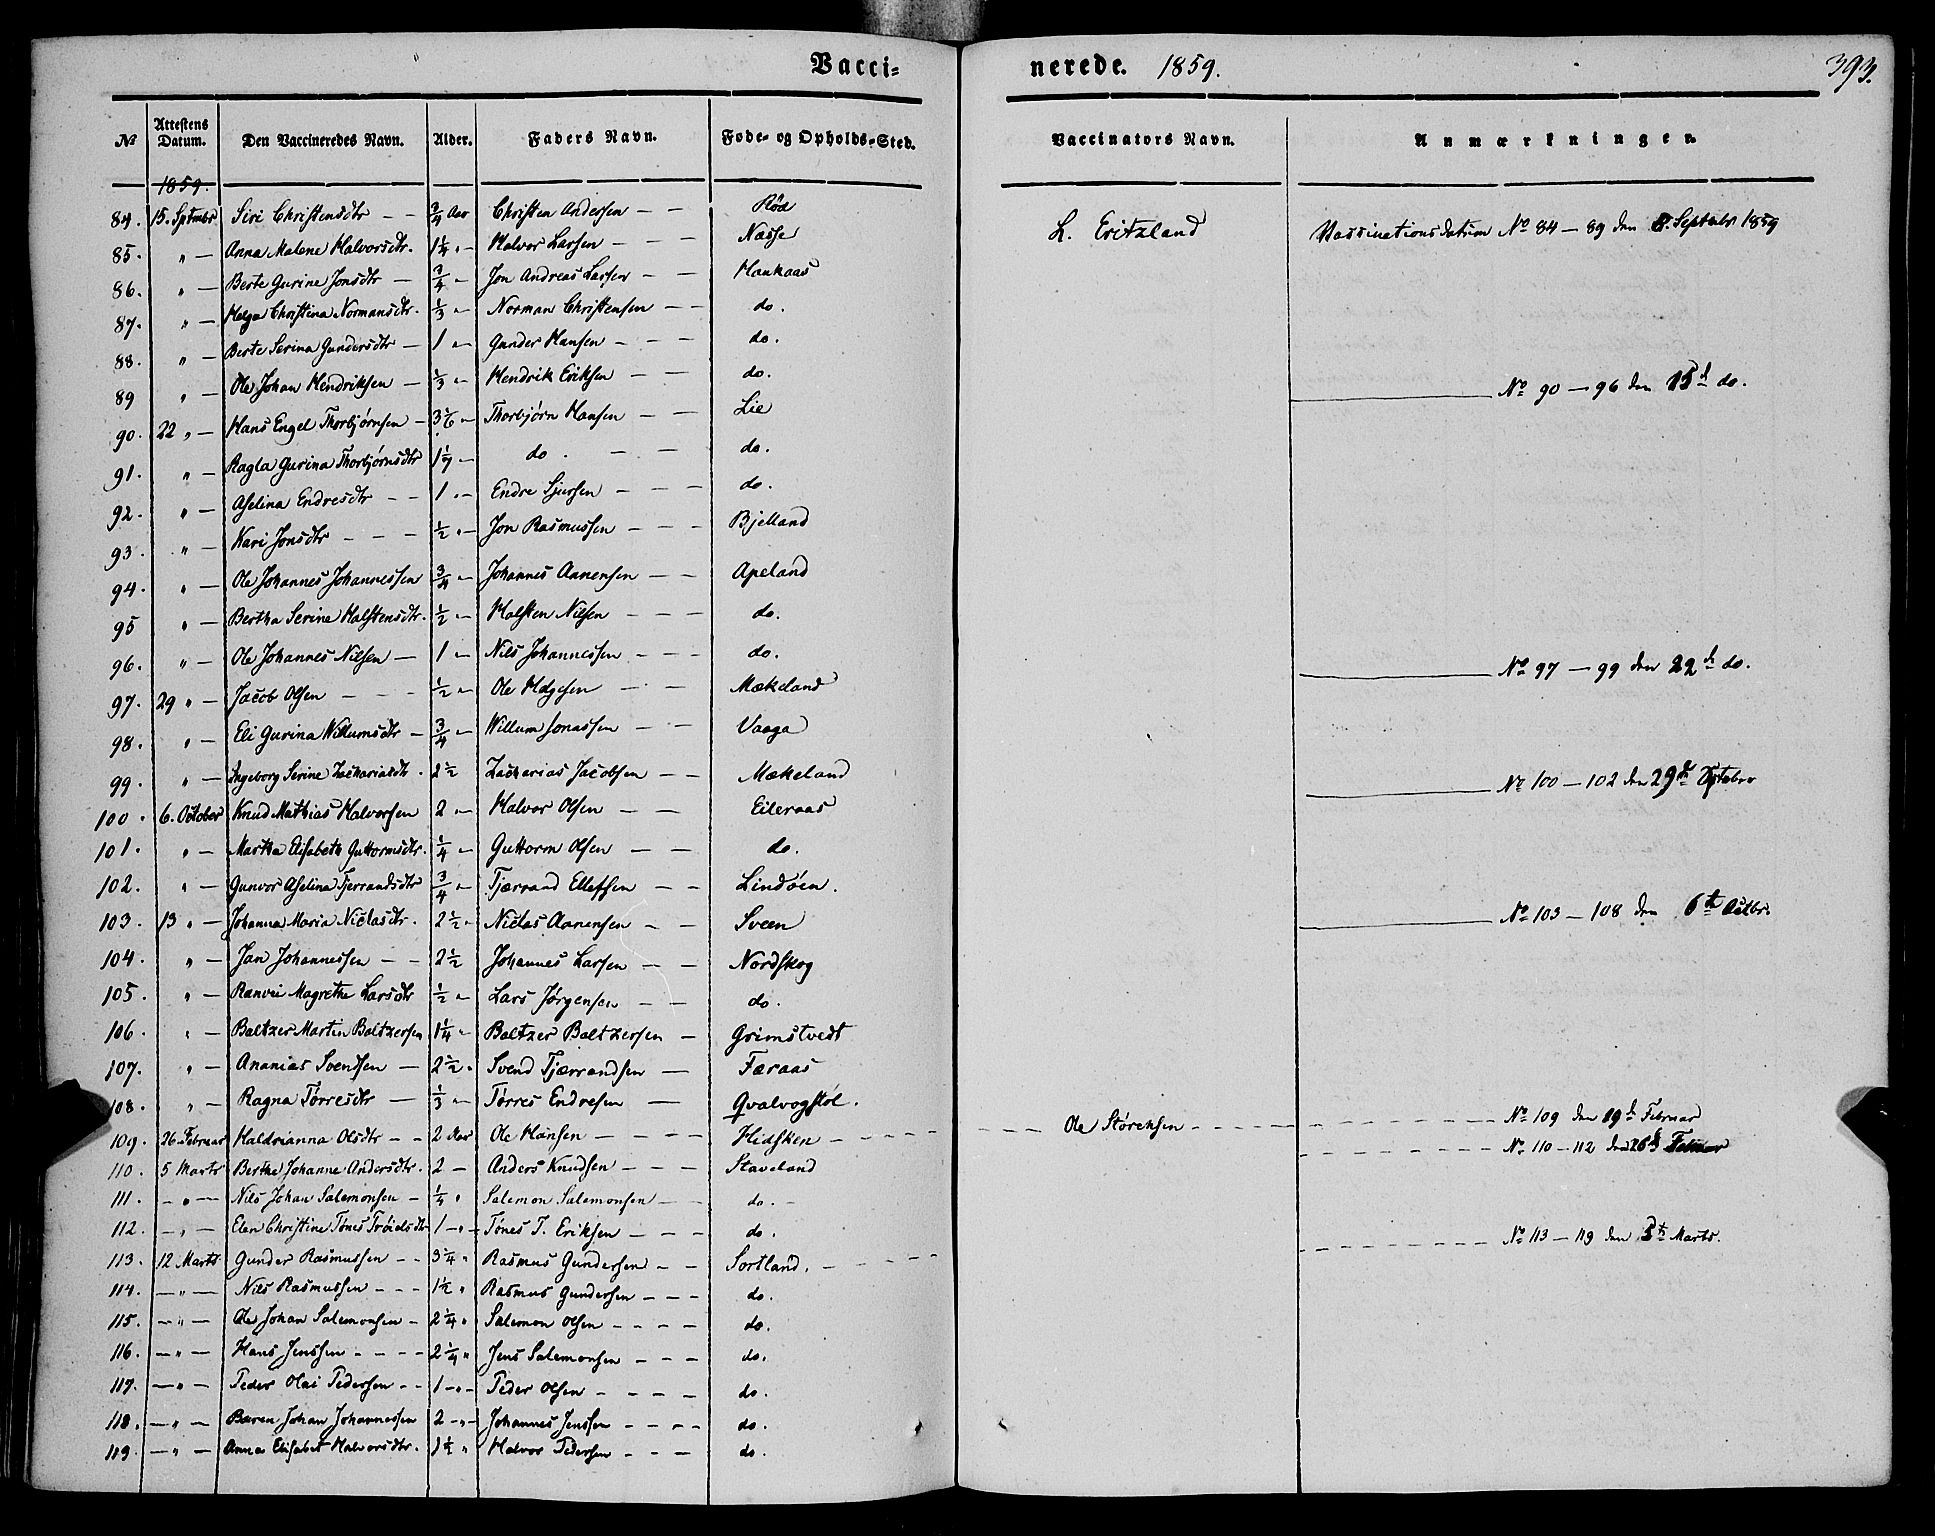 Vacci= nerede. 1859. 393.
No Attestens Datum. Den Vaccineredes Navn. Alder. Faders Navn. Føde- og Opholds-Sted. Vaccinators Navn. Anmærkninger.
1859.
84. 15. Septmbr Siri Christensdtr - - 3/4 Aar Christen Andersen - - Rød L. Eritzland Vassinationsdatum No 84 - 89 den 8. Septubr 1859
85. " - Anna Malene Halvorsdtr. 1 1/4 " - Halvor Larsen - - Næsse
86. " - Berte Gurine Jonsdtr - 3/4 - Jon Andreas Larsen - - Haukaas
87. " - Helga Christina Normansdtr. 1/3 " - Norman Christensen - - do.
88. " - Berte Serina Gundersdtr - 1 " - Gunder Hansen - - - do.
89 " - Ole Johan Hendriksen - 1/3 " - Hendrik Eriksen - - do. No 90 - 96 den 15d do.
90. 22 " - Hans Engel Thorbjørnsen - 3 1/6 - Thorbjørn Hansen - - Lie
91. " - Ragla Gurina Thorbjørnsdtr 1 1/7 - do. - - do.
92. " - Aselina Endresdtr - - 1 " - Endre Sjursen - - - do.
93. " - Kari Jonsdtr - - - 1/2 " - Jon Rasmussen - - - Bjelland
94. " - Ole Johannes Johannessen 3/4 " - Johannes Aanensen - - Apeland
95 " - Bertha Serine Halstensdtr. 1/2 " - Halsten Nilsen - - - do.
96. " - Ole Johannes Nilsen - 1 - Nils Johannessen - - do. No 97 - 99 den 22d do.
97. 29 " - Jacob Olsen - - - 1/2 " - Ole Helgesen - - Mækeland
98. " - Eli Gurina Willumsdtr - 3/4 - Willum Jonassen - - Vaaga
99. " - Ingeborg Serine Zachariasdtr. 2 1/2 Zacharias Jacobsen - - Mækeland No 100 - 102 den 29de Sptebr
100. 6. October Knud Mathias Halvorsen 2 " - Halvor Olsen - - Eileraas
101. " - Martha Elisabeth Guttormsdtr. 1/4 - Guttorm Olsen - - do.
102. " - Gunvor Aselina Tjerrandsdtr 3/4 " - Tjærrand Ellefsen - - Lindøen.
103. 13 " - Johanna Maria Niclasdtr. 2 1/2 " Niclas Aanensen - - Sveen No 103 - 108 den 6te Octbr.
104. " - Jan Johannessen - - 2 1/2 Johannes Larsen - - Nordskog
105. " - Rænvei Magrethe Larsdtr 1/2 " - Lars Jørgensen - - do.
106. " - Baltzer Martin Baltzersen 1 1/4 " - Baltzer Baltzersen - Grimstvedt
107. " - Ananias Svendsen - 2 1/2 " Svend Tjærrandsen - Færaas
108. " - Ragna Tørresdtr - 1/3 " - Tørres Endresen - Qvalvogstøl.
109. 26. Februar Haldrianna Olsdtr - - 2 Aar Ole Hansen - - - - Hidsken - - - - Ole Størchsen - - - - No 109 den 19d Februar
110. 5 Marts Berthe Johanne Andersdtr. 2 - Anders Knudsen - - - Staveland No 110 - 112 den 26d Februar
111. - " - Nils Johan Salemonsen - 1/4 " Salemon Salemonsen - - do. -
112. - " - Elen Christine Tønes Trøidsdtr 1 - " - Tønes T. Eriksen - - - do.
113. 12 Marts Gunder Rasmussen - - 3 1/4 " Rasmus Gundersen - - Sortland. - - - No 113 - 119 den 5te Marts.
114. - " - Nils Rasmussen - - - 1 1/2 " Rasmus Gundersen - - - do.
115. - " - Ole Johan Salemonsen - 2 1/4 " Salemon Olsen - - - - do.
116. - " - Hans Jenssen - - - - 2 1/4 " Jens Salemonsen - - - do.
117. - " - Peder Olai Pedersen - - 1 - " - Peder Olsen - - - - do.
118. - " - Bæren Johan Johannessen 2 - " - Johannes Jenssen - - - - do.
119. - " - Anna Elisabet Halvorsdtr. 1 1/2 " Halvor Pedersen - - - do.